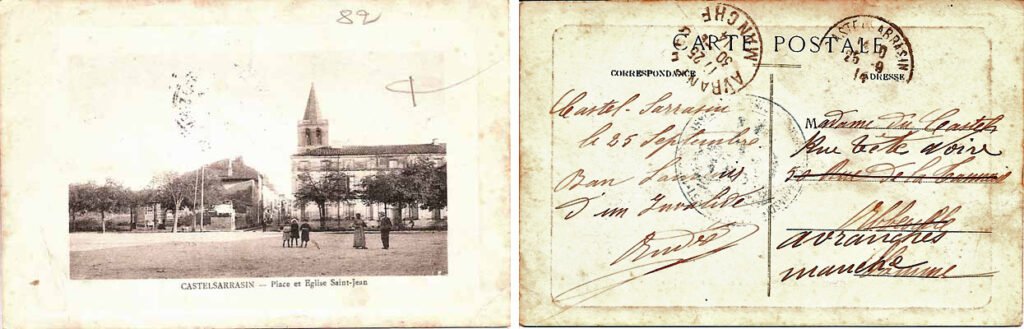 82
CASTELSARRASIN — Place et Eglise Saint-Jean
CARTE POSTALE
CORRESPONDANCE
ADRESSE
AVRANCHES
MANCHE
17 25
30
CASTELSARRASIN
25 -9
14
Castel-Sarrasin
le 25 Septembre
Bon
d'un Invalide
André
Madame du Castel
Rue tete noire
Rue de la
Abbeville
avranches
manche Somme